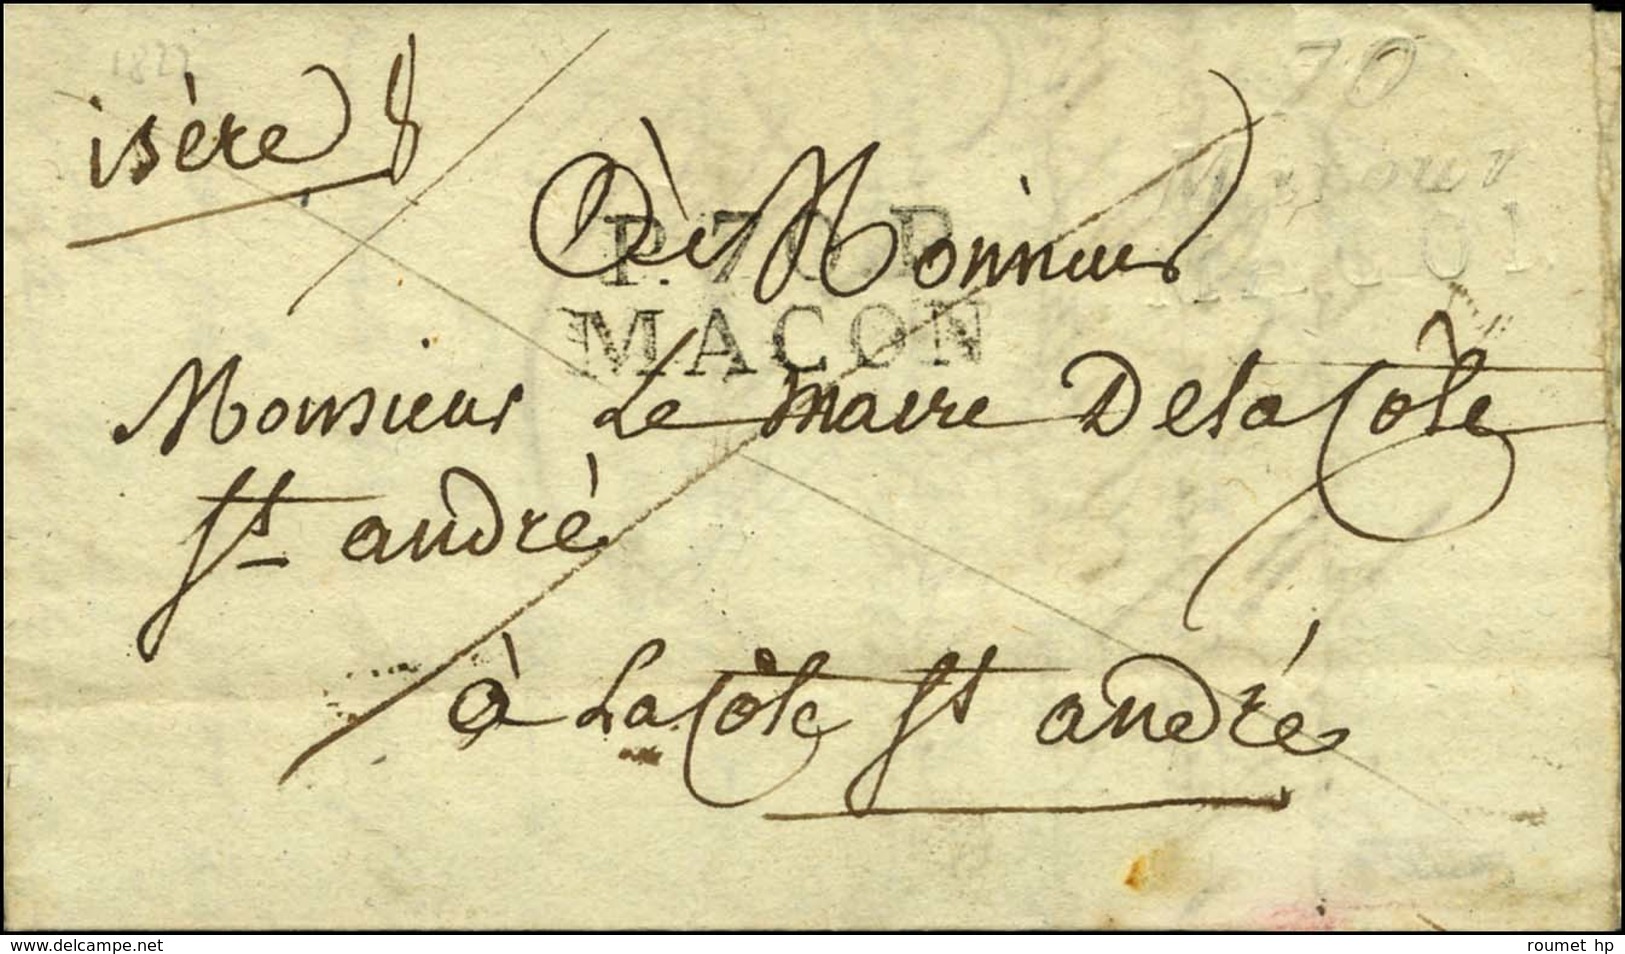 1822
70
isère
P.70.P
MACON
à Monsieur
Monsieur Le maire Delacôte
St andré
à Lacôte St andré
www.delcampe.net
roumet hp